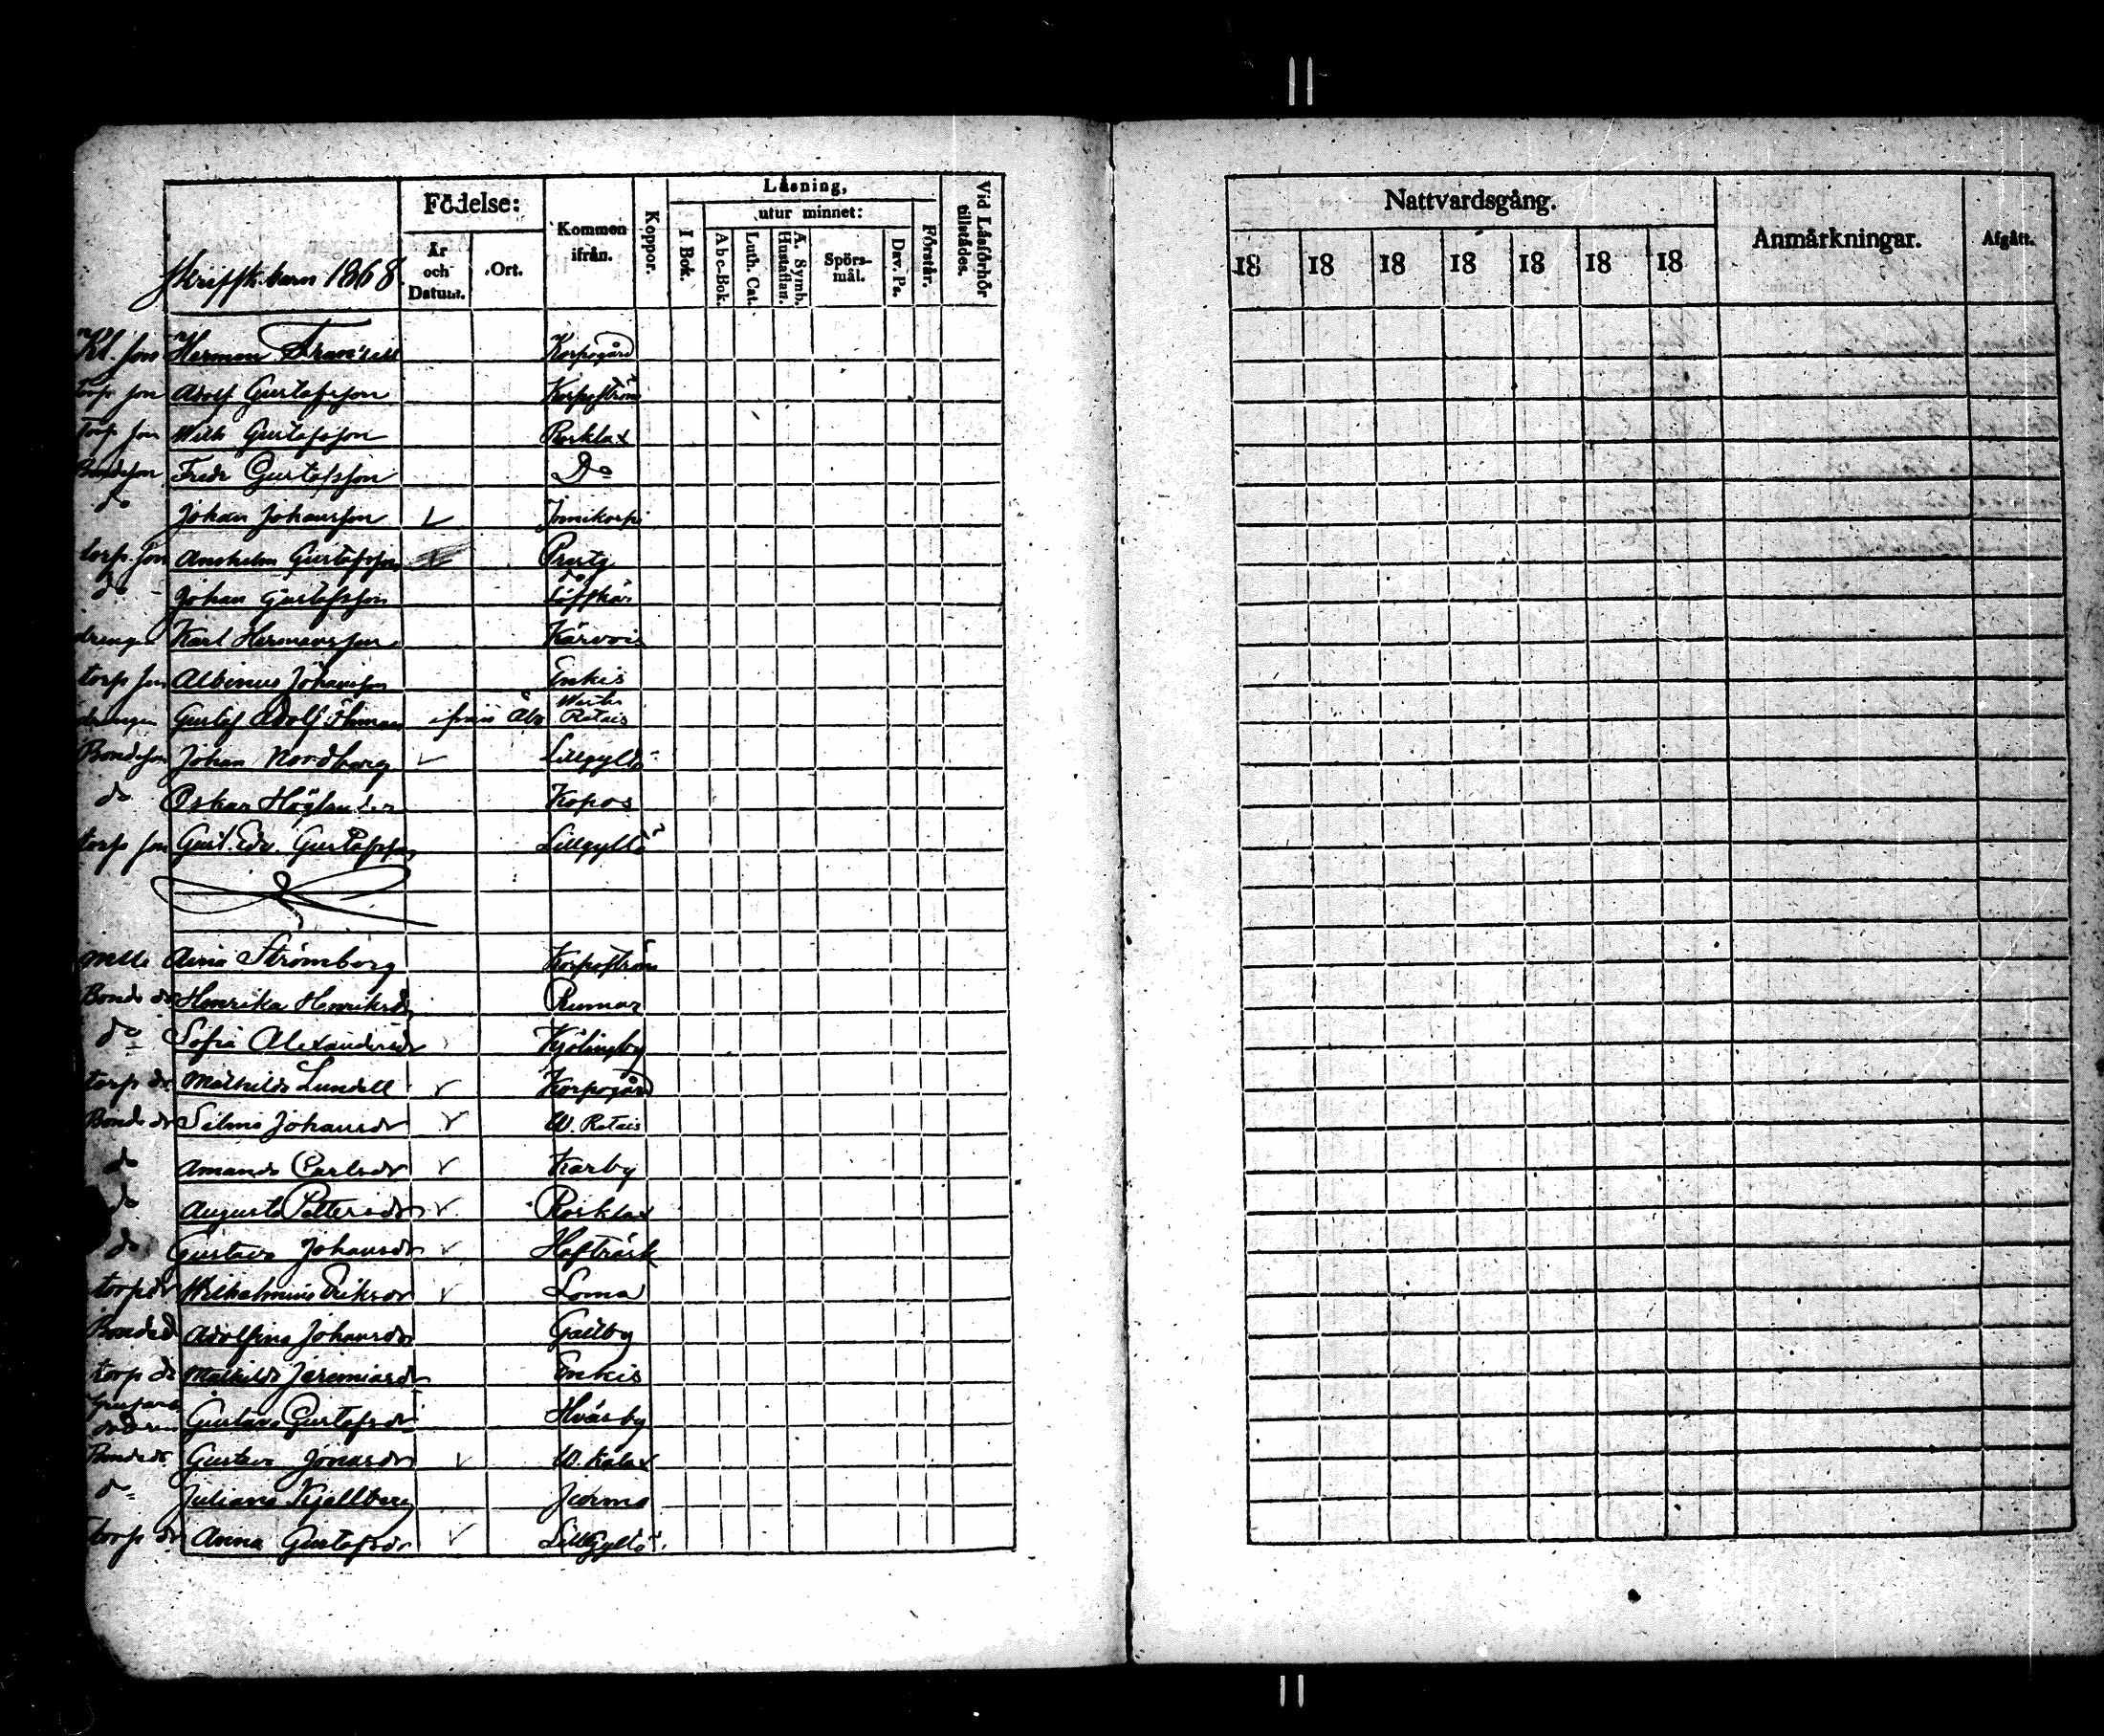 Skriftsk. barn 1868.
Födelse:
År och Datum.
Ort.
Kommen ifrån.
Koppor.
Läsning,
utur minnet:
I. Bok.
Abc-Bok.
Luth. Cat.
A. Symb. Hustaflan.
Spörsmål.
Dav. Ps.
Förstår.
Vid Läsförhör tillstädes.
Nattvardsgång.
18 18 18 18 18 18 18
Anmärkningar.
Afgått.
Kl. son Herman Korpogård
torp son Adolf Gustafsson Korpoström
torp son Wilh Gustafsson Rosklax
Bondeson Fredr Gustafsson Do
do Johan Johansson Jonnikorpi
torp. son Anshelm Gustafsson
do Johan Gustafsson Löfskär
drengen Karl Hermansson Kärvois
torp son Albinus Johansson Enkis
drengen Gustaf Adolf Öhman ifrån Åbo Wester Retais
Bondeson Johan Nordberg Lillgyltö
do Oskar Höglander Kopos
torp son Gust. Edv. Gustafsson Lillgyltö
Mlle Aina Strömborg Korpoström
Bonde dr Henrika Henriksdr Rumar
do Sofia Alexandersdr Kjölingby
torp dr Mathilda Lundell Korpogård
Bonde dr Selma Johansdr W. Retais
do Amanda Carlsdr Karby
do Augusta Pettersdr Rosklax
do Gustava Johansdr Hofträsk
torp dr Wilhelmina Eriksdr Loma
Bonded Adolfina Johansdr Galtby
torp dr Mathilda Jeremiasdr Enkis
Gustava Gustafsdr Hväsby
Bondedr Gustava Jonasdr W. Kalax
do Juliana Kjellberg Jurmo
torp dr Anna Gustafsdr Lillgyltö.